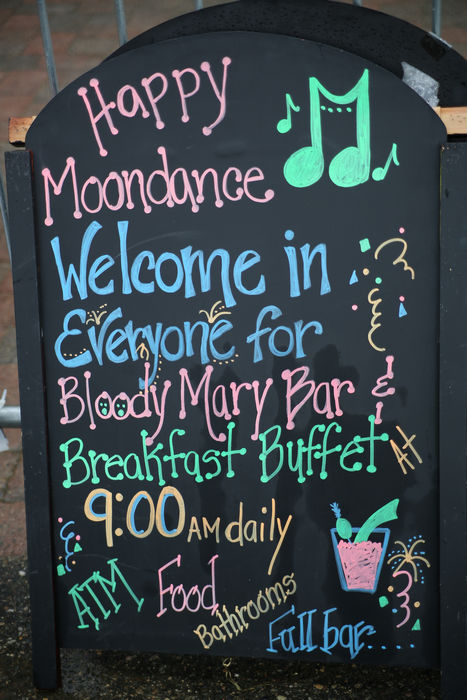 Happy
Moondance
Welcome in
Everyone for
Bloody Mary Bar &
Breakfast Buffet At
9:00 AM daily
ATM Food Bathrooms Full bar.....